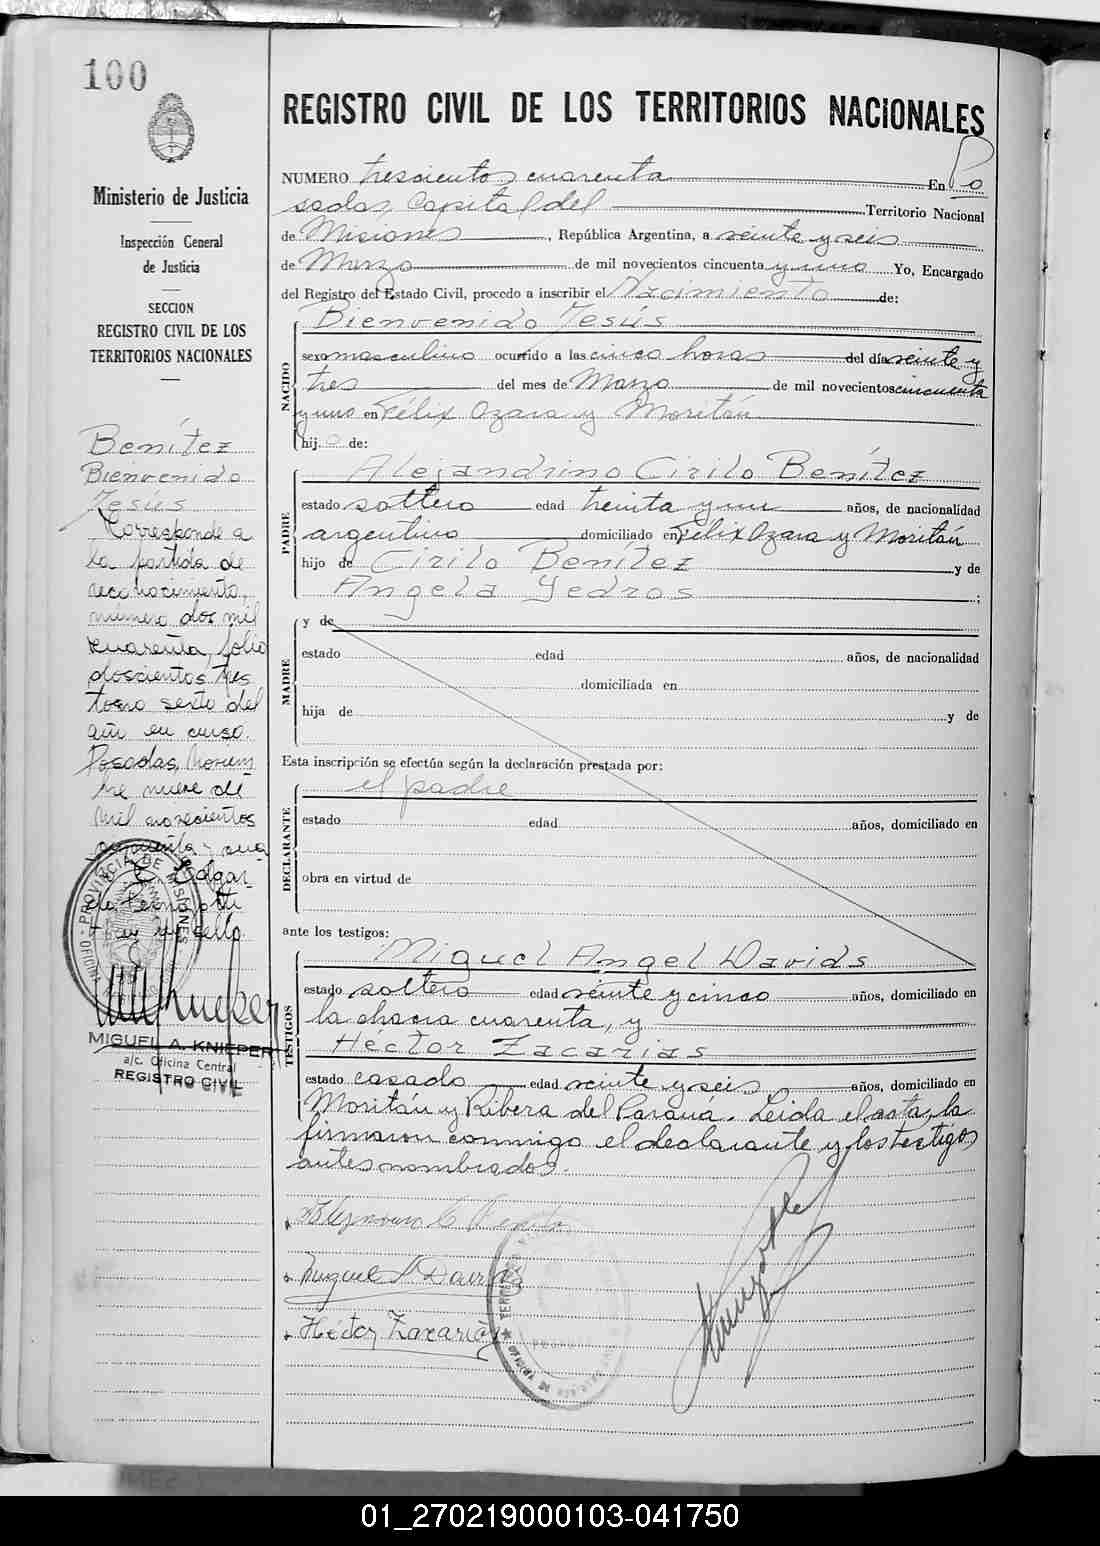 100
Ministerio de Justicia
Inspección General
de Justicia
SECCION
REGISTRO CIVIL DE LOS
TERRITORIOS NACIONALES
Benítez
Bienvenido
Jesús
Corresponde a
la partida de
reconocimiento,
número dos mil
cuarenta, folio
doscientos tres
tomo sexto del
año en curso.
Posadas, Noviem
bre nueve de
mil novecientos
cincuenta y uno
E. Edgar
y mi sello
PROVINCIA DE MISIONES
MIGUEL A. KNIEPER
a/c. Oficina Central
REGISTRO CIVIL
REGISTRO CIVIL DE LOS TERRITORIOS NACIONALES
NUMERO trescientos cuarenta En Po
sadas, Capital del Territorio Nacional
de Misiones, República Argentina, a veinte y seis
de Marzo de mil novecientos cincuenta y uno Yo, Encargado
del Registro del Estado Civil, procedo a inscribir el Nacimiento de:
NACIDO
Bienvenido Jesús
sexo masculino ocurrido a las cinco horas del día veinte y
tres del mes de Marzo de mil novecientos cincuenta
y uno en Félix Azara y Moritán
hijo de:
PADRE
Alejandrino Cirilo Benítez
estado soltero edad treinta y un años, de nacionalidad
argentino domiciliado en Félix Azara y Moritán
hijo de Cirilo Benítez y de
Angela Yedros;
MADRE
y de
estado edad años, de nacionalidad
domiciliada en
hija de y de
Esta inscripción se efectúa según la declaración prestada por:
DECLARANTE
el padre
estado edad años, domiciliado en
obra en virtud de
ante los testigos:
TESTIGOS
Miguel Angel Davids
estado soltero edad veinte y cinco años, domiciliado en
la chacra cuarenta, y
Héctor Zacarias
estado casado edad veinte y seis años, domiciliado en
Moritán y Ribera del Paraná. Leida el acta, la
firmaron conmigo el declarante y los testigos
antes nombrados.
Miguel A Davids
Héctor Zacarías
01_270219000103-041750